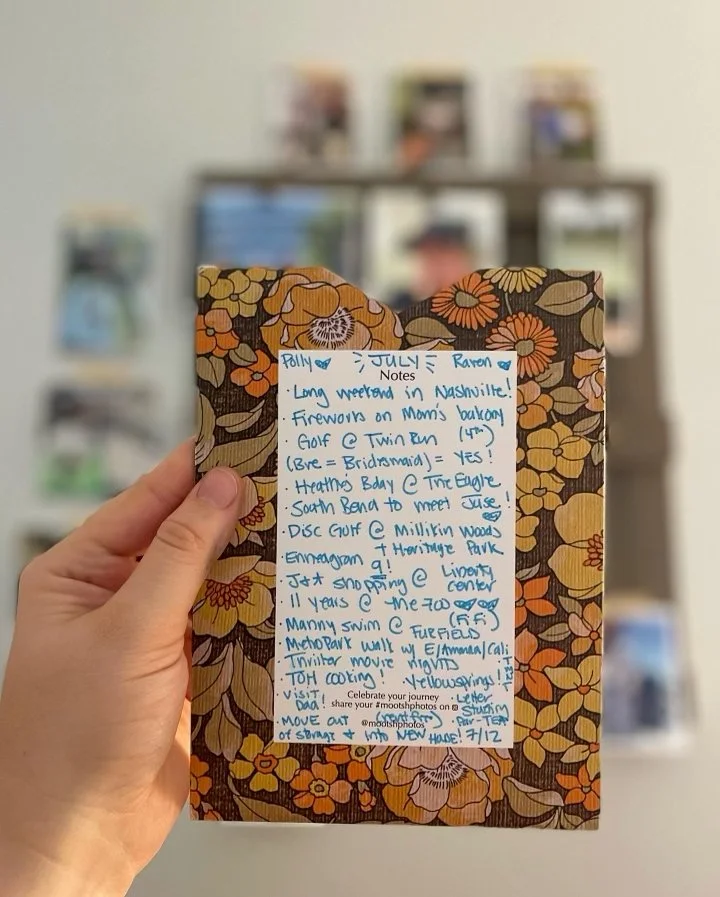 Polly JULY Raven
Notes
· Long weekend in Nashville!
· Fireworks on Mom's balcony
· Golf @ Twin Run (4th)
(Bre = Bridesmaid) = YES!
· Heath's Bday @ The Eagle
· South Bend to meet Juse!
· Disc Golf @ Millikin Woods
+ Heritage Park
· Enneagram 9!
· J++ shopping @ Liberty center
· 11 years @ the 700
· Manny swim @ FURFIELD
· MetroPark walk w/ E/Amanda/Cali
· Thriller movie nights
· TOH cooking! Yellowsprings!
· Visit Dad!
Celebrate your journey
share your #mootshphotos on
@mootshphotos
· Letter
· MOVE out (rent free)
of storage + into NEW HOUSE! 7/12